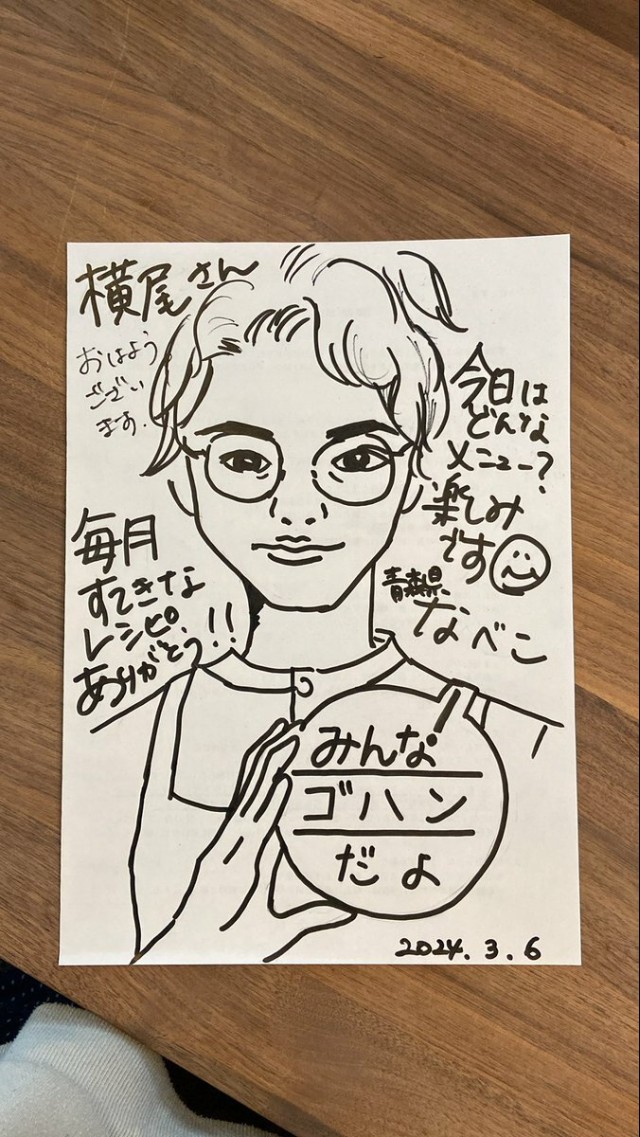 横尾さん
おはよう
ござい
ます.
今日は
どんな
メニュー?
楽しみ
です
青森県
なべこ
毎月
すてきな
レシピ
ありがとう!!
みんな
ゴハン
だよ
2024.3.6